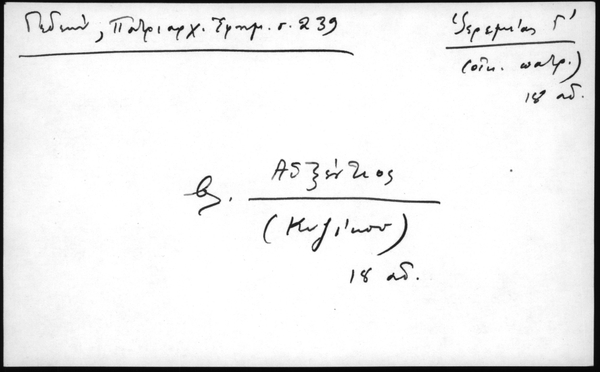 Γεδεών, Πατριαρχ. Ἐφημ. σ. 239
Ἱερεμίας Γ'
(οἰκ. πατρ.)
18 αἰ.
βλ. Αὐξέντιος
(Κυζίκου)
18 αἰ.